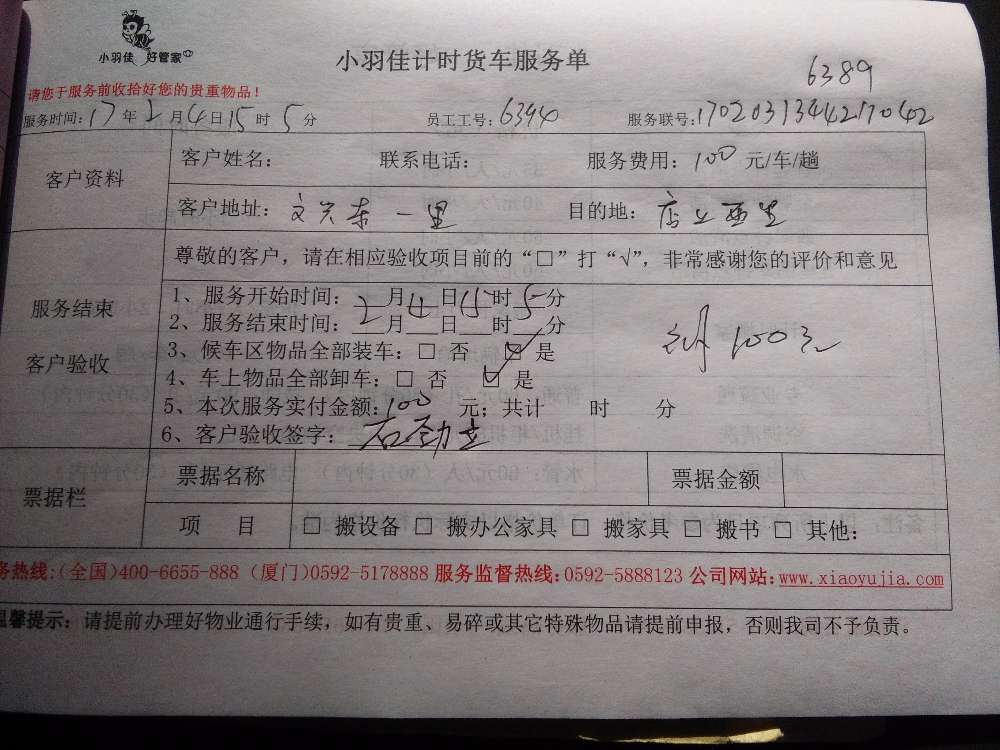 小羽佳 好管家
小羽佳计时货车服务单
6389
请您于服务前收拾好您的贵重物品！
服务时间：17年2月4日15时5分 员工工号：6394 服务联号：17020313442170402
客户资料
客户姓名： 联系电话： 服务费用：100 元/车/趟
客户地址：文兴东一里 目的地：店上西
尊敬的客户，请在相应验收项目前的“□”打“√”，非常感谢您的评价和意见
服务结束
客户验收
1、服务开始时间：2月4日15时5分
2、服务结束时间：2月__日__时__分
3、候车区物品全部装车：□ 否 ☑ 是
100元
4、车上物品全部卸车：□ 否 ☑ 是
5、本次服务实付金额：100 元；共计 时 分
6、客户验收签字：石劲
票据栏
票据名称 票据金额
项 目 □ 搬设备 □ 搬办公家具 □ 搬家具 □ 搬书 □ 其他：
务热线：(全国)400-6655-888 (厦门)0592-5178888 服务监督热线：0592-5888123 公司网站：www.xiaoyujia.com
温馨提示：请提前办理好物业通行手续，如有贵重、易碎或其它特殊物品请提前申报，否则我司不予负责。